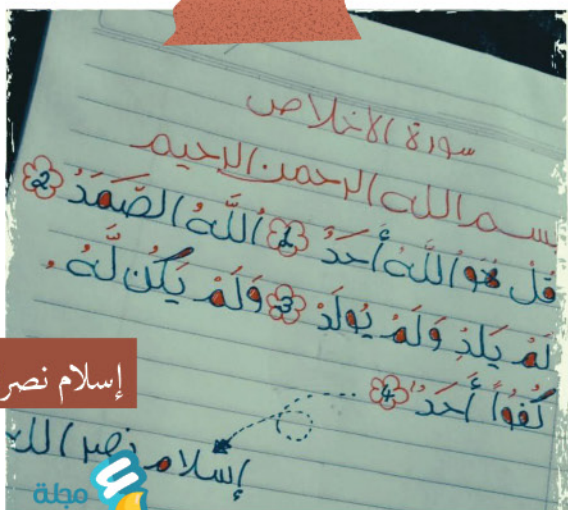 سورة الاخلاص
بسم الله الرحمن الرحيم
قُلْ هُوَ اللَّهُ أَحَدٌ 1 اللَّهُ الصَّمَدُ 2
لَمْ يَلِدْ وَلَمْ يُولَدْ 3 وَلَمْ يَكُن لَّهُ
كُفُوًا أَحَدٌ 4
إسلام نصر
إسلام نصر الله
مجلة